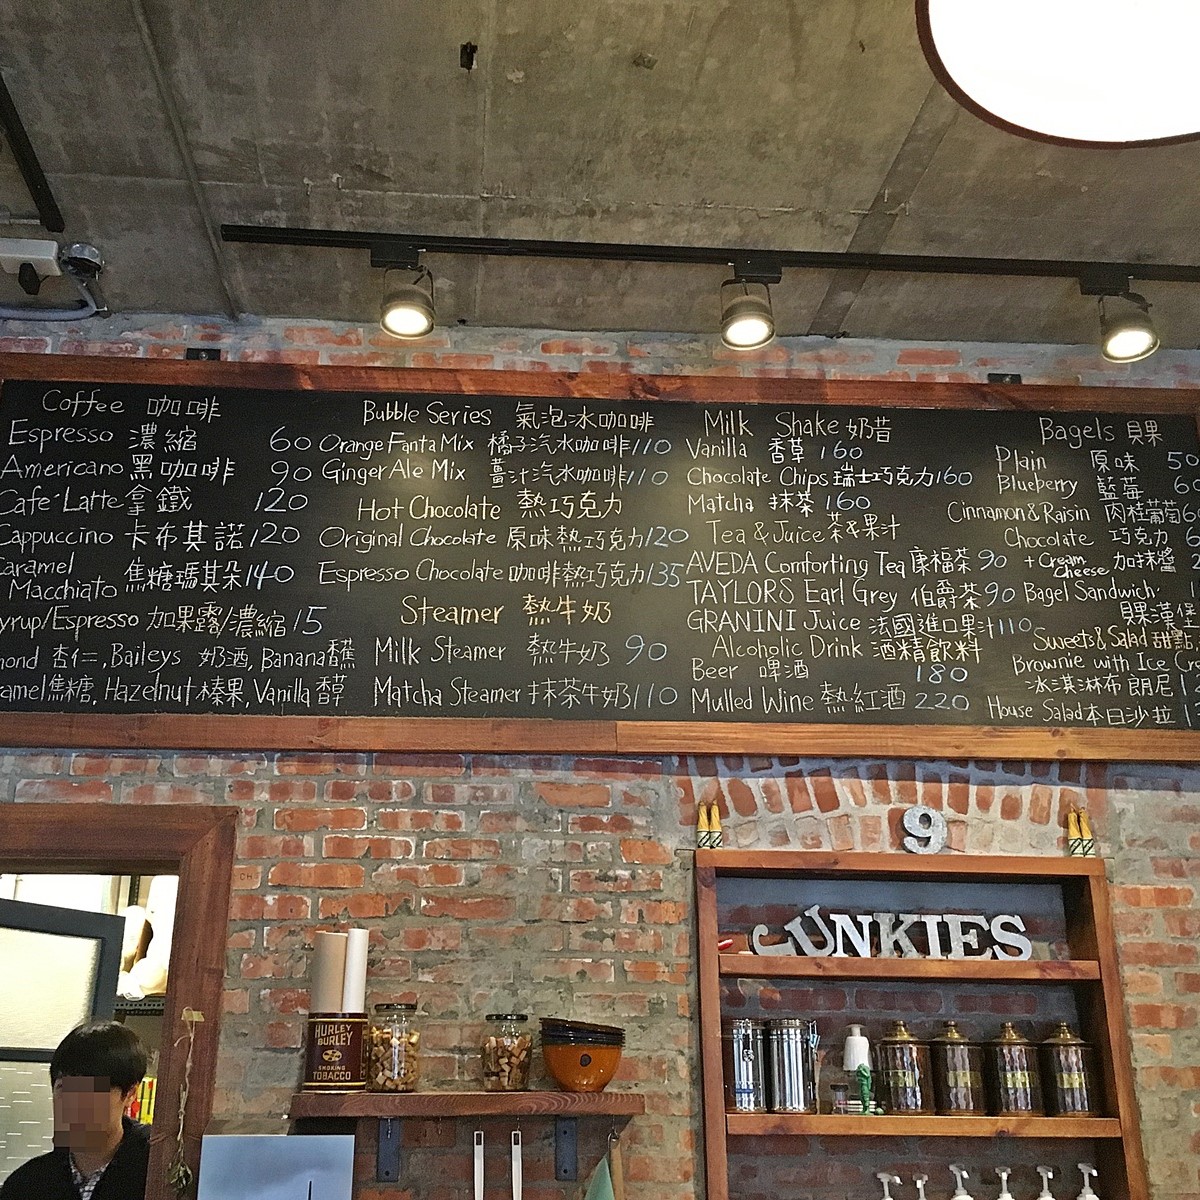 Coffee 咖啡
Espresso 濃縮 60
Americano 黑咖啡 90
Café Latte 拿鐵 120
Cappuccino 卡布其諾 120
Caramel
Macchiato 焦糖瑪其朵 140
yrup/Espresso 加果露/濃縮 15
mond 杏仁, Baileys 奶酒, Banana香蕉
ramel焦糖, Hazelnut榛果, Vanilla 香草
Bubble Series 氣泡冰咖啡
Orange Fanta Mix 橘子汽水咖啡 110
Ginger Ale Mix 薑汁汽水咖啡 110
Hot Chocolate 熱巧克力
Original Chocolate 原味熱巧克力 120
Espresso Chocolate 咖啡熱巧克力 135
Steamer 熱牛奶
Milk Steamer 熱牛奶 90
Matcha Steamer 抹茶牛奶 110
Milk Shake 奶昔
Vanilla 香草 160
Chocolate Chips 瑞士巧克力 160
Matcha 抹茶 160
Tea & Juice 茶&果汁
AVEDA Comforting Tea 康福茶 90
TAYLORS Earl Grey 伯爵茶 90
GRANINI Juice 法國進口果汁 110
Alcoholic Drink 酒精飲料
Beer 啤酒 180
Mulled Wine 熱紅酒 220
Bagels 貝果
Plain 原味 50
Blueberry 藍莓 60
Cinnamon & Raisin 肉桂葡萄 6
Chocolate 巧克力 6
+ Cream Cheese 加抹醬 2
Bagel Sandwich 1
貝果漢堡
Sweets & Salad 甜點,
Brownie with Ice Cr
冰淇淋布朗尼 12
House Salad 本日沙拉 1
9
JUNKIES
HURLEY
BURLEY
SMOKING
TOBACCO